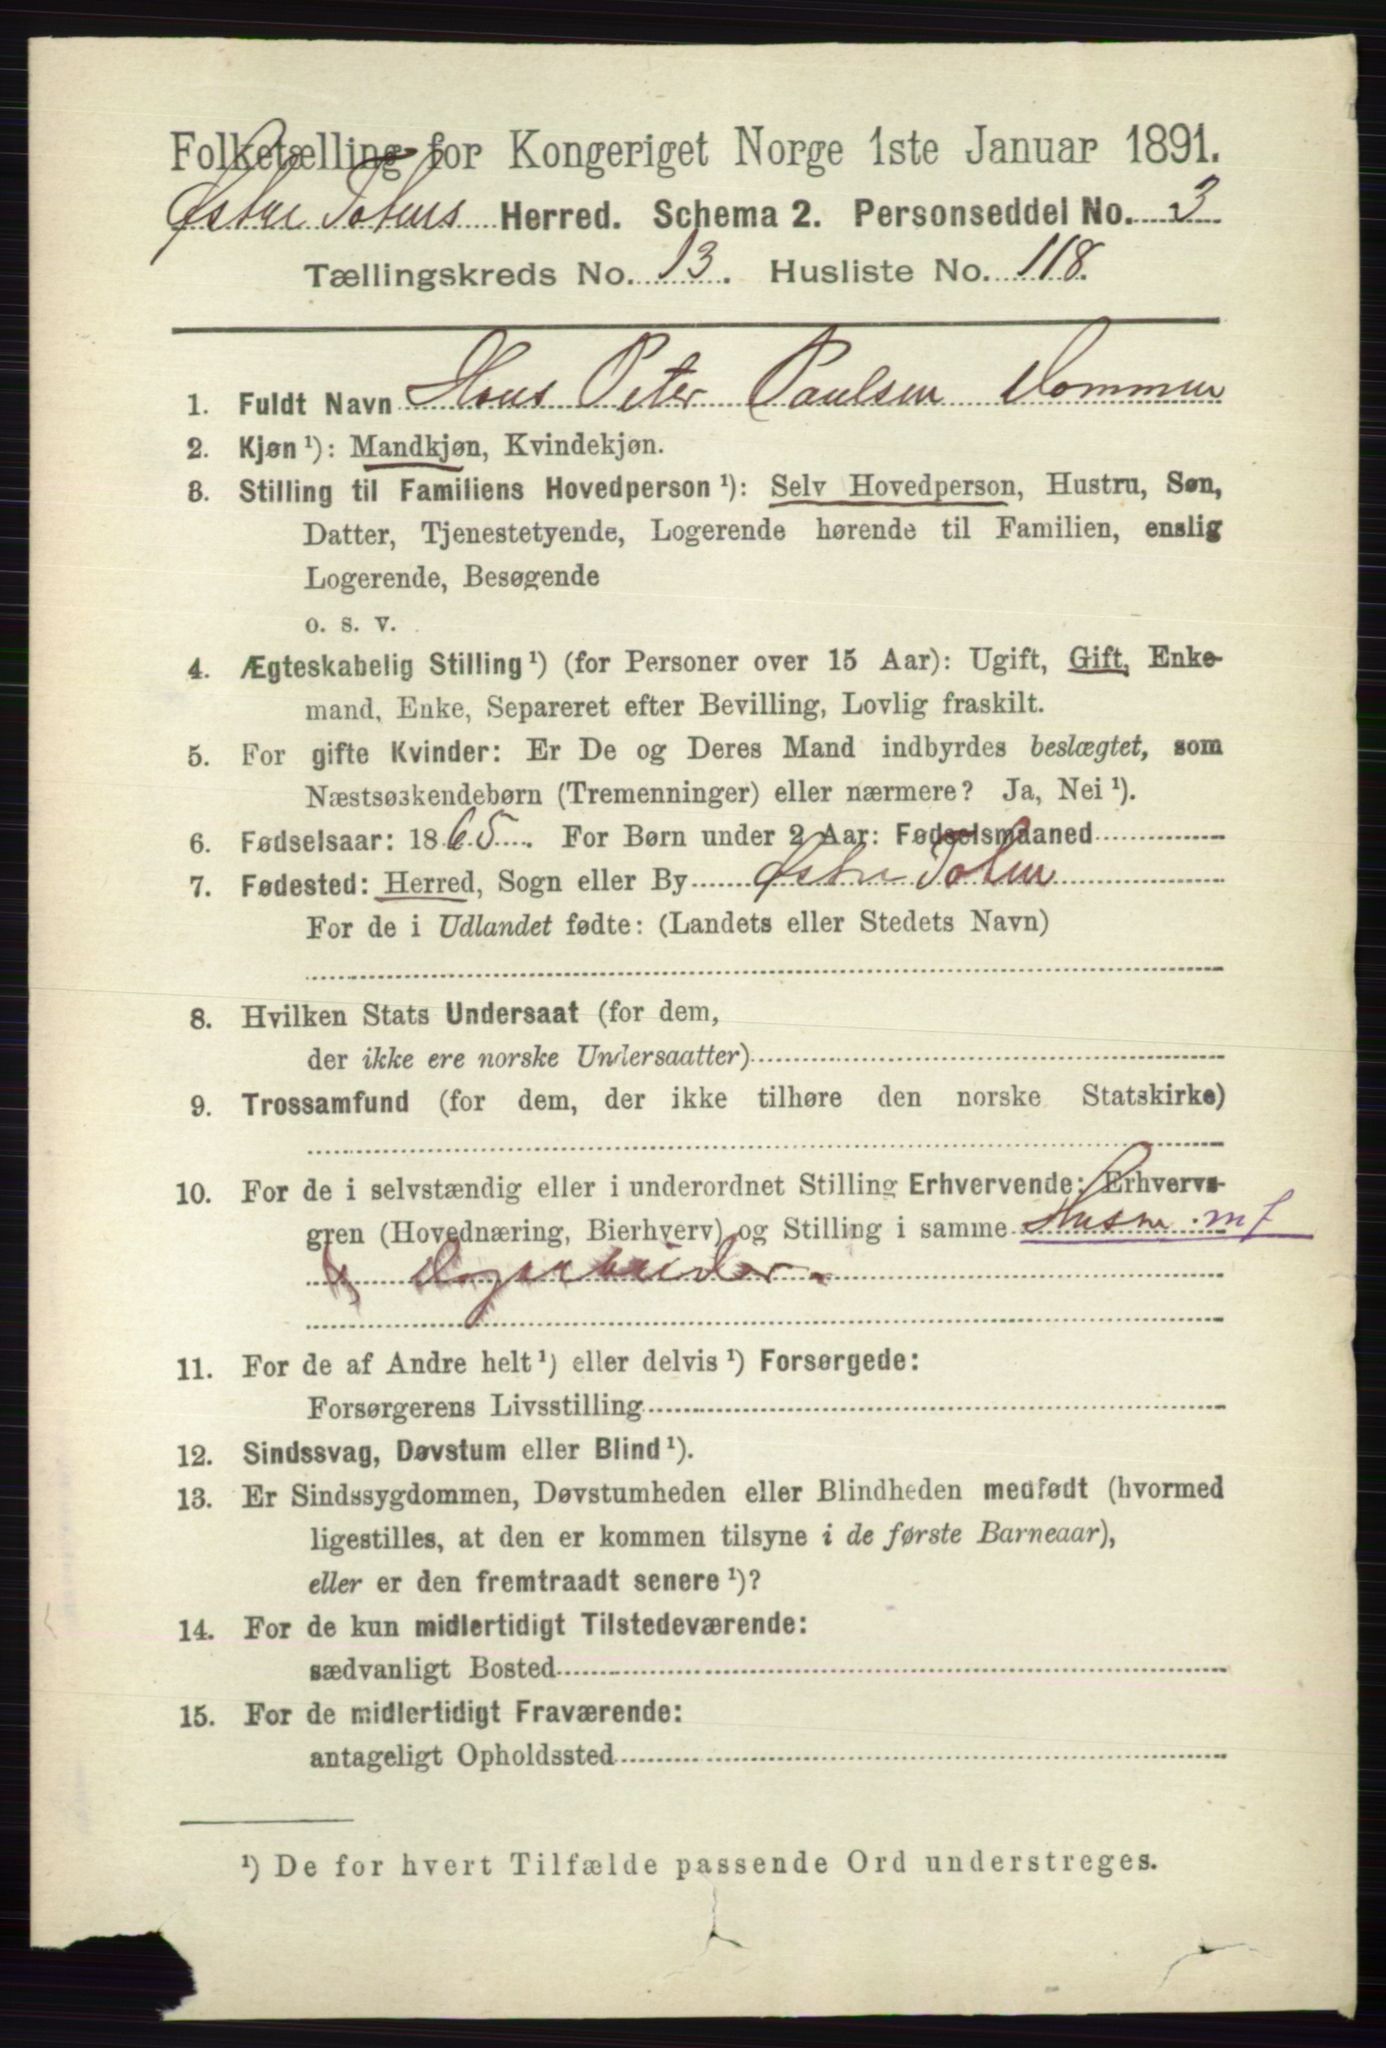 Folketælling for Kongeriget Norge 1ste Januar 1891.
Østre Totens Herred. Schema 2. Personseddel No. 3
Tællingskreds No. 13. Husliste No. 118.
1. Fuldt Navn Hans Peter Paulsen
2. Kjøn ¹): Mandkjøn, Kvindekjøn.
3. Stilling til Familiens Hovedperson ¹): Selv Hovedperson, Hustru, Søn,
Datter, Tjenestetyende, Logerende hørende til Familien, enslig
Logerende, Besøgende
o. s. v.
4. Ægteskabelig Stilling ¹) (for Personer over 15 Aar): Ugift, Gift, Enke-
mand, Enke, Separeret efter Bevilling, Lovlig fraskilt.
5. For gifte Kvinder: Er De og Deres Mand indbyrdes beslægtet, som
Næstsøskendebørn (Tremenninger) eller nærmere? Ja, Nei ¹).
6. Fødselsaar: 1865. For Børn under 2 Aar: Fødselsmaaned
7. Fødested: Herred, Sogn eller By Østre Toten
For de i Udlandet fødte: (Landets eller Stedets Navn)
8. Hvilken Stats Undersaat (for dem,
der ikke ere norske Undersaatter)
9. Trossamfund (for dem, der ikke tilhøre den norske Statskirke)
10. For de i selvstændig eller i underordnet Stilling Erhvervende: Erhvervs-
gren (Hovednæring, Bierhverv) og Stilling i samme Husm. m f
& Dagarbeider.
11. For de af Andre helt ¹) eller delvis ¹) Forsørgede:
Forsørgerens Livsstilling
12. Sindssvag, Døvstum eller Blind ¹).
13. Er Sindssygdommen, Døvstumheden eller Blindheden medfødt (hvormed
ligestilles, at den er kommen tilsyne i de første Barneaar),
eller er den fremtraadt senere ¹)?
14. For de kun midlertidigt Tilstedeværende:
sædvanligt Bosted
15. For de midlertidigt Fraværende:
antageligt Opholdssted
¹) De for hvert Tilfælde passende Ord understreges.